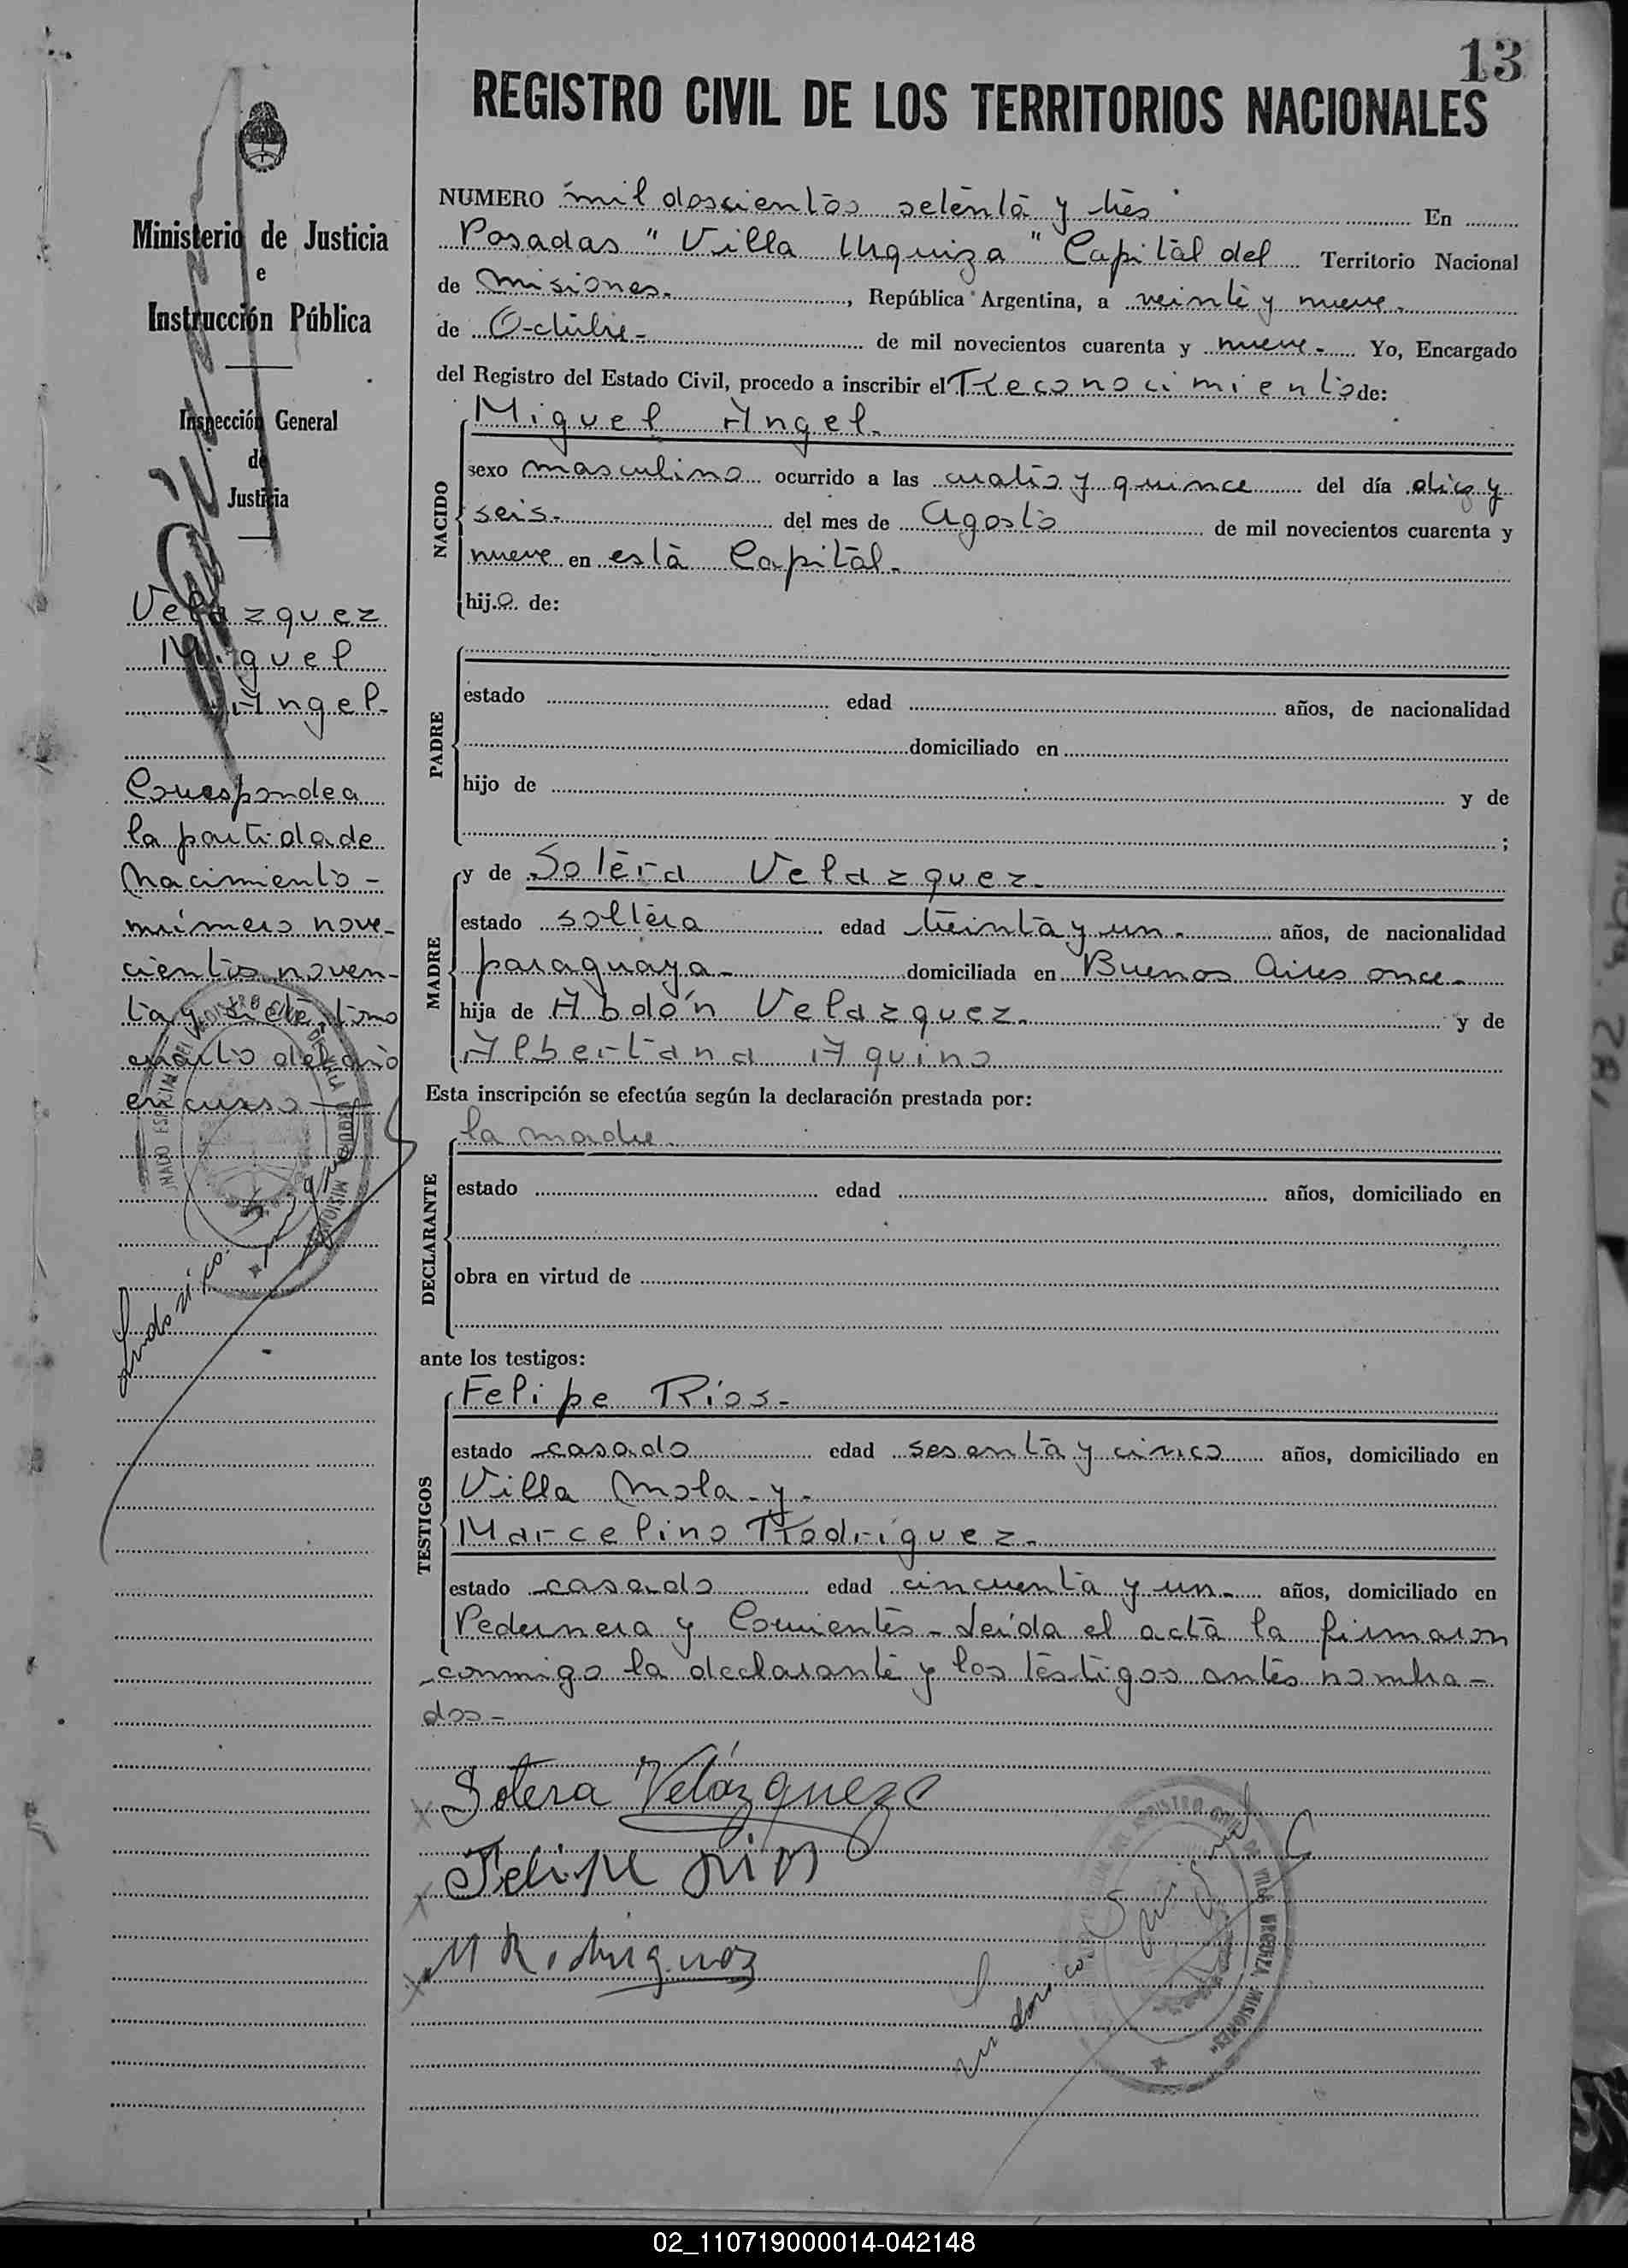 13
REGISTRO CIVIL DE LOS TERRITORIOS NACIONALES
Ministerio de Justicia
e
Instrucción Pública
Inspección General
de
Justicia
Velazquez
Miguel
Angel.
Corresponde a
la partida de
Nacimiento -
número nove-
cientos noven-
ta y siete, tomo
cuarto del año
en curso
NUMERO mil doscientos setenta y tres En
Posadas "Villa Urquiza" Capital del Territorio Nacional
de Misiones. , República Argentina, a veinte y nueve.
de Octubre - de mil novecientos cuarenta y nueve - Yo, Encargado
del Registro del Estado Civil, procedo a inscribir el Reconocimiento de:
NACIDO
Miguel Angel.
sexo masculino ocurrido a las cuatro y quince del día diez y
seis. del mes de Agosto de mil novecientos cuarenta y
nueve en esta Capital.
hijo de:
PADRE
estado edad años, de nacionalidad
domiciliado en
hijo de y de
;
MADRE
y de Sotera Velazquez.
estado soltera edad treinta y un. años, de nacionalidad
paraguaya - domiciliada en Buenos Aires once -
hija de Abdón Velazquez. y de
Albertana Aquino
Esta inscripción se efectúa según la declaración prestada por:
DECLARANTE
la madre.
estado edad años, domiciliado en
obra en virtud de
ante los testigos:
TESTIGOS
Felipe Ríos -
estado casado edad sesenta y cinco años, domiciliado en
Villa Mola - y -
Marcelino Rodríguez.
estado casado edad cincuenta y un - años, domiciliado en
Pedernera y Corrientes - Leída el acta la firmaron
conmigo la declarante y los testigos antes nombra-
dos -
Sotera Velázquez
Felipe Rios
M Rodriguez
REGISTRO CIVIL DE VILLA URQUIZA MISIONES
02_110719000014-042148